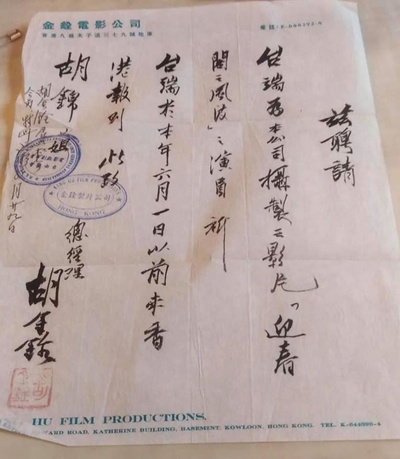 金銓電影公司
茲聘請
台端為本公司攝製之影片「迎春
閣之風波」之演員祈
台端於本年六月一日以前來香
港報到 此致
胡錦小姐
總經理
胡金銓
HONG KONG
HU FILM PRODUCTIONS.
ROAD, KATHERINE BUILDING, BASEMENT, KOWLOON, HONG KONG. TEL.